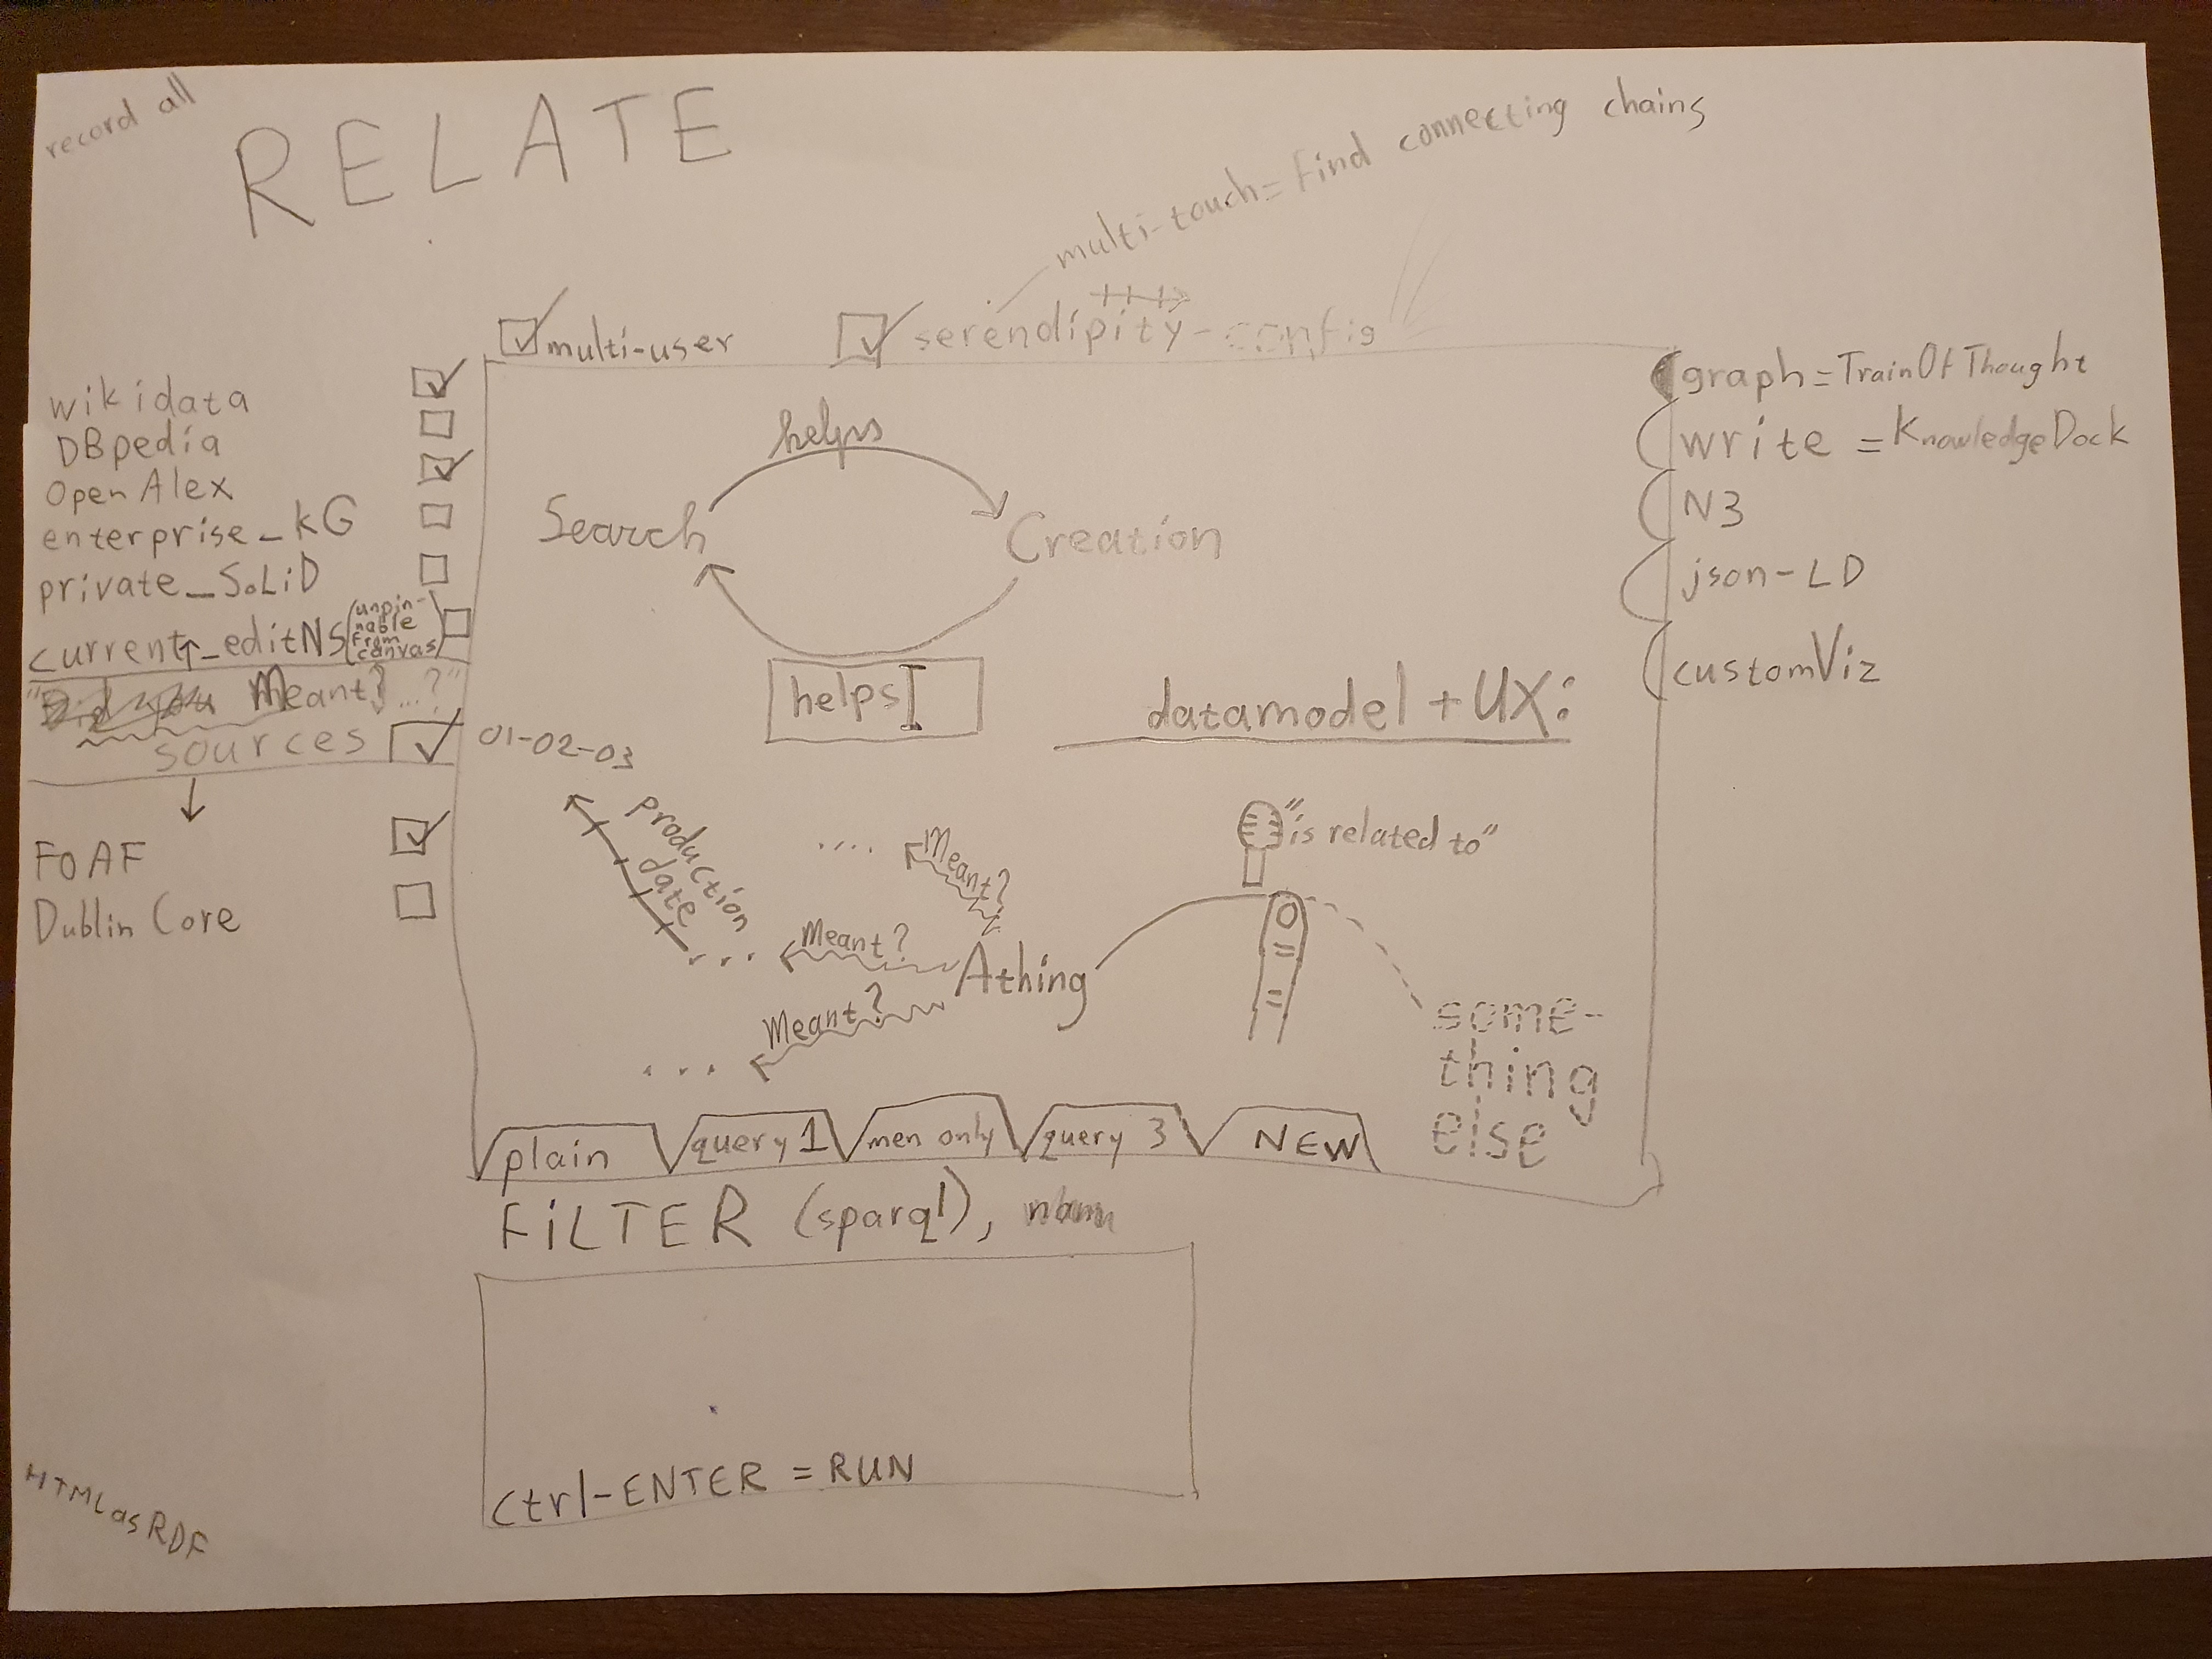 record all
RELATE
multi-touch = find connecting chains
multi-user
serendipity-config
wikidata
DBpedia
OpenAlex
enterprise_KG
private_SoLiD
current_editNS (unpin-
nable
from
canvas)
Meant? ...?"
sources
FOAF
Dublin Core
helps
Search
Creation
helps
datamodel + UX:
01-02-03
production
date
....
Meant?
"is related to"
...
Meant?
Athing
Meant?
...
some-
thing
else
plain
query 1
men only
query 3
NEW
FiLTER (sparql),
Ctrl-ENTER = RUN
graph = TrainOfThought
write = KnowledgeDock
N3
json-LD
customViz
HTML as RDF